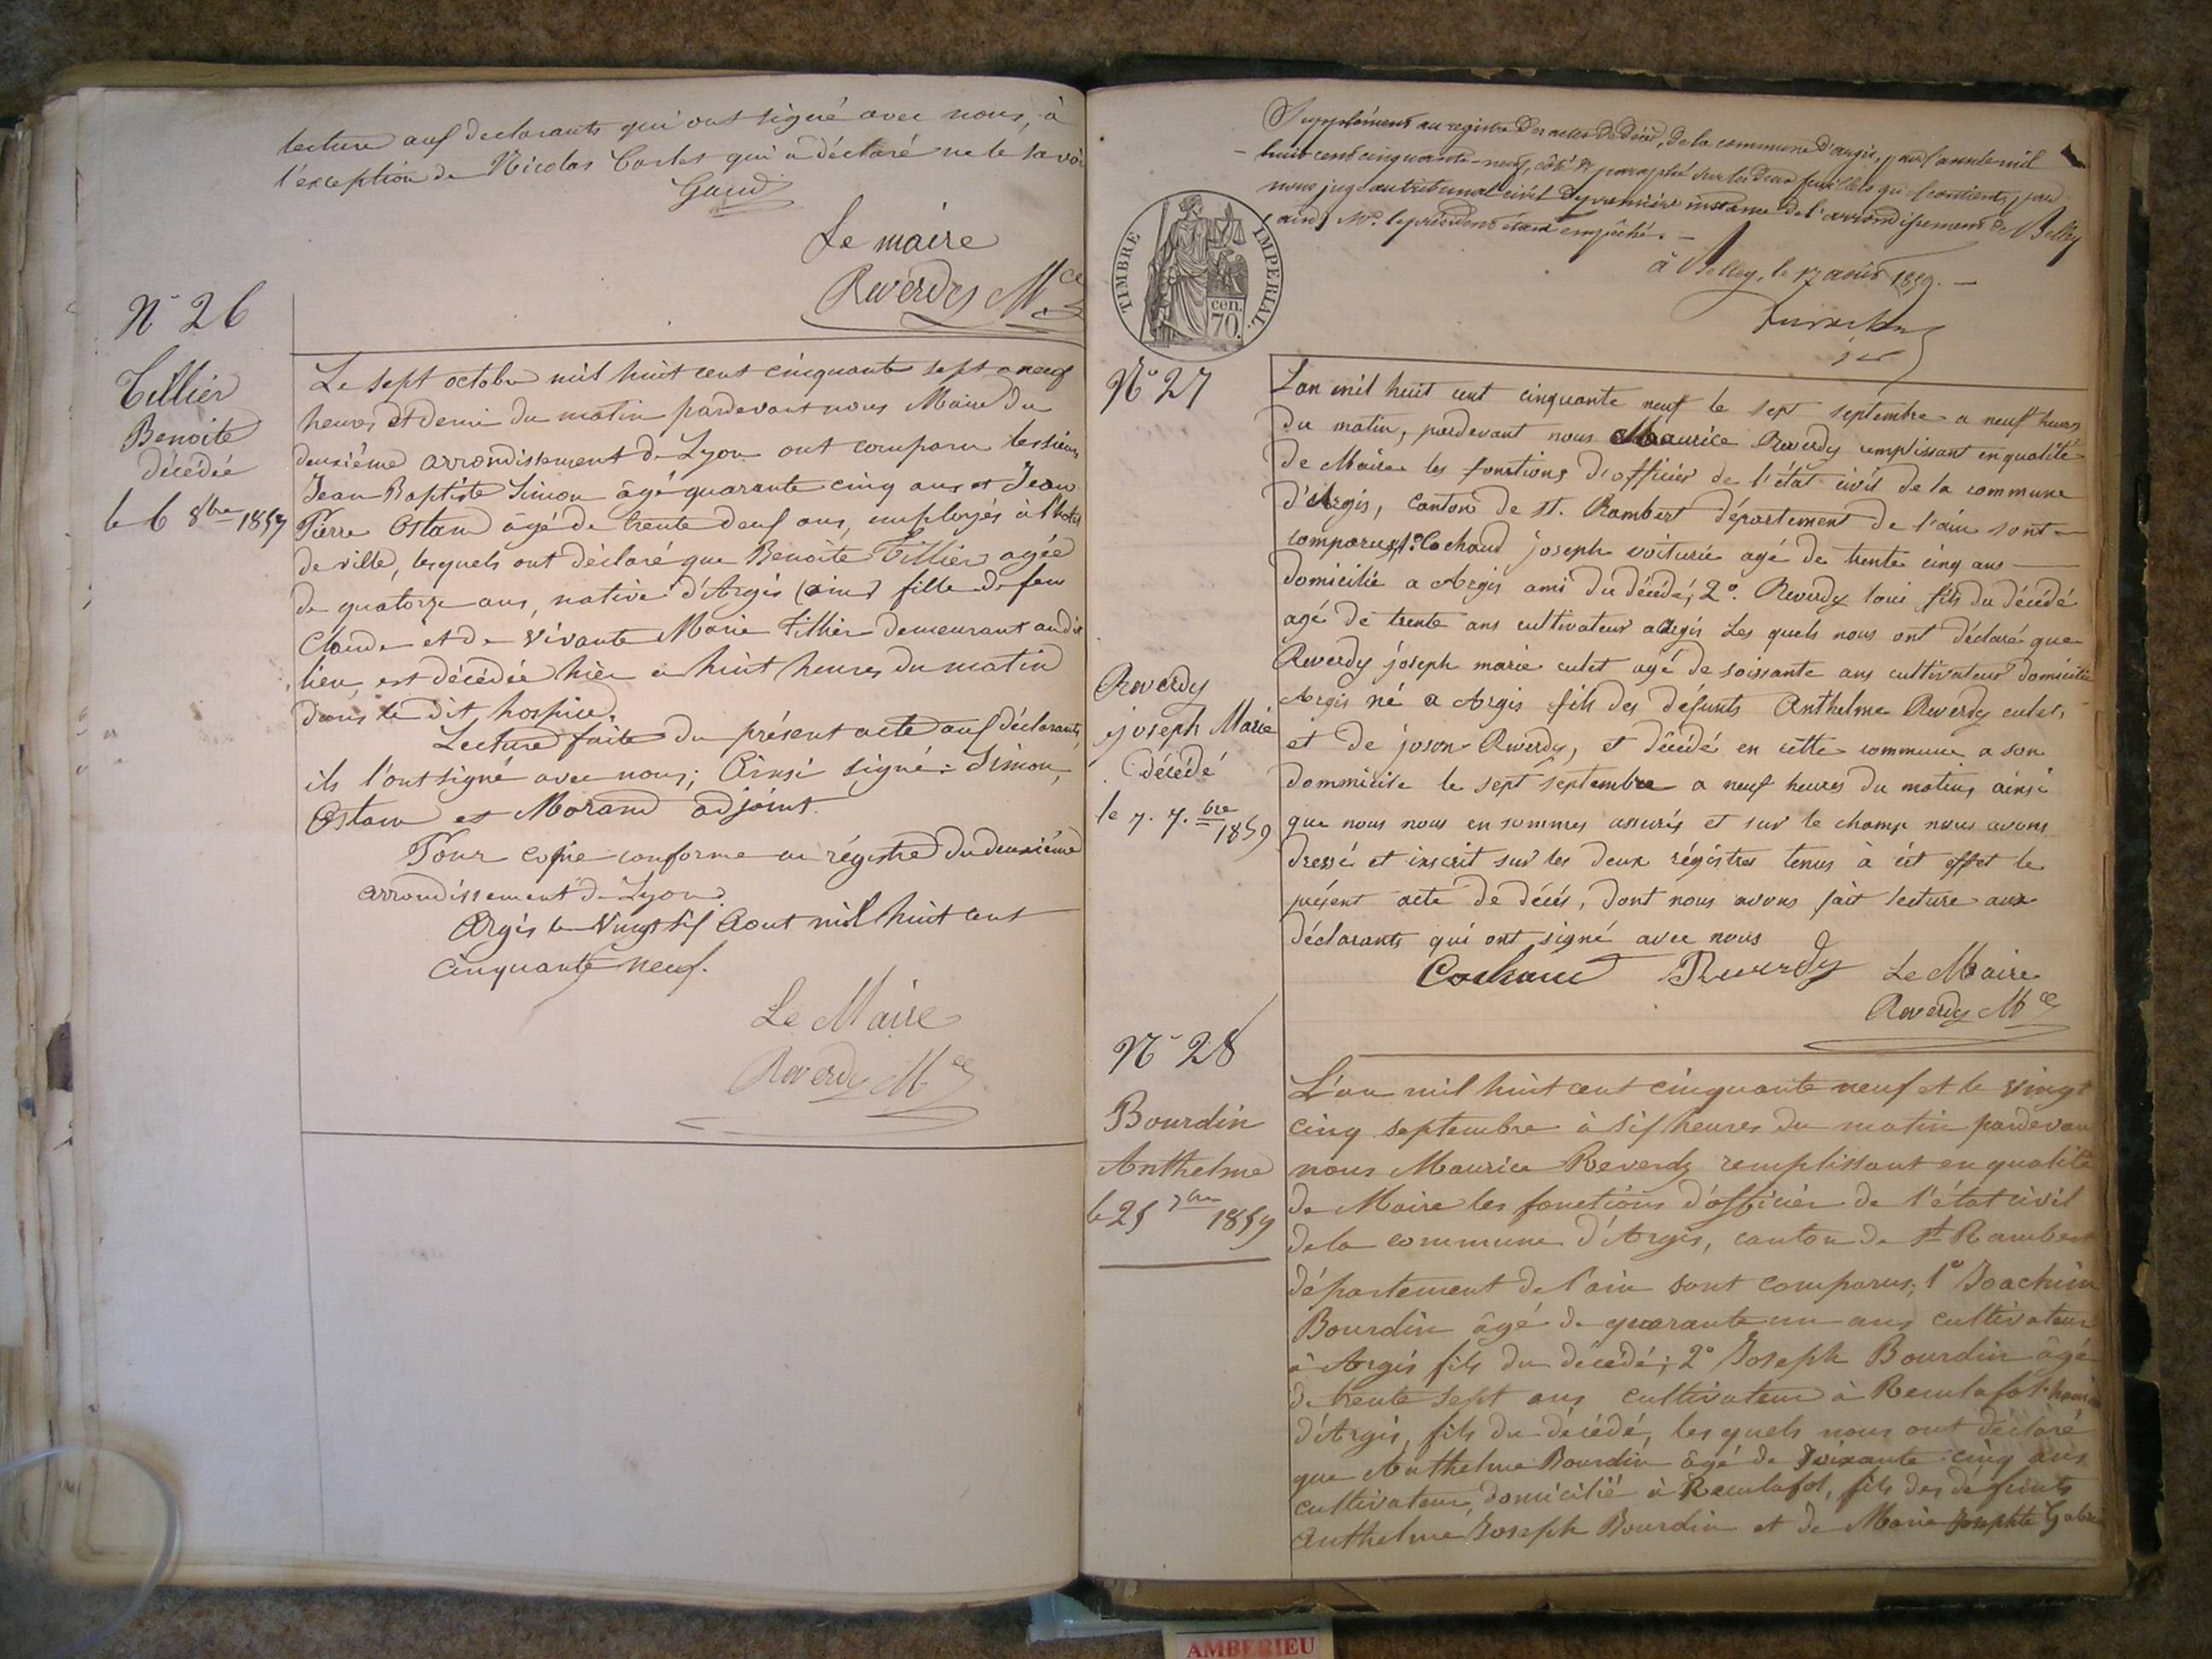 lecture aux declarants qui ont signé avec nous, à
l'exception de Nicolas Carles qui a déclaré ne le savoir
Gaud
Le maire
Reverdy Mce
N° 26
Tillier
Benoite
décédée
le 6 8bre 1857
Le sept octobre mil huit cent cinquante sept a neuf
heures et demi du matin pardevant nous Maire du
deuxiéme arrondissement de Lyon ont comparu les sieurs
Jean Baptiste Simon âgé quarante cinq ans et Jean
Pierre Ostan âgé de trente deux ans, employés à l'hotel
de ville, lesquels ont déclaré que Benoite Tillier agée
de quatorze ans, native d'Argis (ain) fille de feu
Claude et de vivante Marie Tillier demeurant audit
lieu, est décédée hier a huit heures du matin
dans le dit hospice.
Lecture faite du présent acte aux déclarants,
ils l'ont signé avec nous; Ainsi signé: Simon,
Ostan et Morand adjoint.
Pour copie conforme au régistre du deuxiéme
arrondissement de Lyon.
Argis le Vingt six Aout mil huit cent
Cinquante neuf.
Le Maire
Reverdy Mce
Supplément au registre des actes de décès, de la commune d'argis, pour l'année mil
huit cent cinquante-neuf, côté & paraphé sur les deux feuillets qu'il contient, par
nous juge au tribunal civil de première instance de l'arrondissement de Belley
(ain) Mr. le président étant empêché. —
à Belley, le 17 août 1859. —
TIMBRE IMPERIAL
70. cen
N° 27
Reverdy
joseph Marie
décédé
le 7. 7.bre 1859
L'an mil huit cent cinquante neuf le sept septembre a neuf heures
du matin, pardevant nous Maurice Reverdy remplissant en qualité
de Maire les fonctions d'officier de l'état civil de la commune
d'Argis, canton de st. Rambert département de l'ain sont
comparus 1° Cochaud joseph voiturié agé de trente cinq ans
domicilié a Argis ami du décédé; 2°. Reverdy loui fils du décédé
agé de trente ans cultivateur a argis Les quels nous ont déclaré que
Reverdy joseph marie culet agé de soissante ans cultivateur domicilié
Argis né a Argis fils des défunts Anthelme Reverdy culet,
et de joson Reverdy, et décédé en cette commune a son
dommicile le sept septembre a neuf heures du matin, ainsi
que nous nous en sommes assurés et sur le champ nous avons
dressé et inscrit sur les deux régistres tenus à cet effet le
présent acte de décés, dont nous avons fait lecture aux
déclarants qui ont signé avec nous
Cochaud Reverdy Le Maire
Reverdy Mce
N° 28
Bourdin
Anthelme
le 25 7bre 1859
L'an mil huit cent cinquante neuf et le vingt
cinq septembre à six heures du matin pardevan
nous Maurice Reverdy remplissant en qualité
de Maire les fonctions d'officier de l'état civil
de la commune d'Argis, canton de St Rambert
département de l'ain sont comparus; 1° Joachim
Bourdin âgé de quarante un ans cultivateur
à Argis fils du décédé; 2° Joseph Bourdin âgé
de trente sept ans cultivateur à Reculafol
d'Argis, fils du décédé, lesquels nous ont déclaré
que Anthelme Bourdin âgé de soixante cinq ans
cultivateur, domicilié à Reculafol, fils des défunts
Anthelme Joseph Bourdin et de Marie Josephte
AMBERIEU